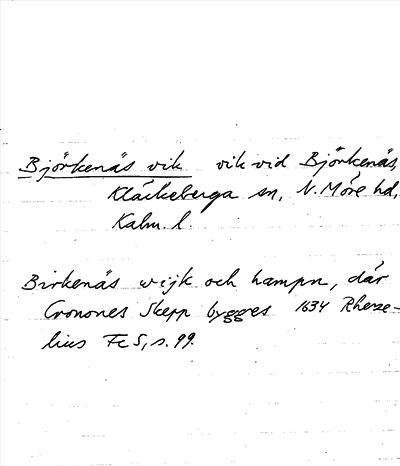 Björkenäs vik vik vid Björkenäs,
Kläckeberga sn, N. Möre hd,
Kalm. l.
Birkenäs wijk och hampn, där
Cronones Skepp bygges 1634 Rhezelius
FcS, s. 99.